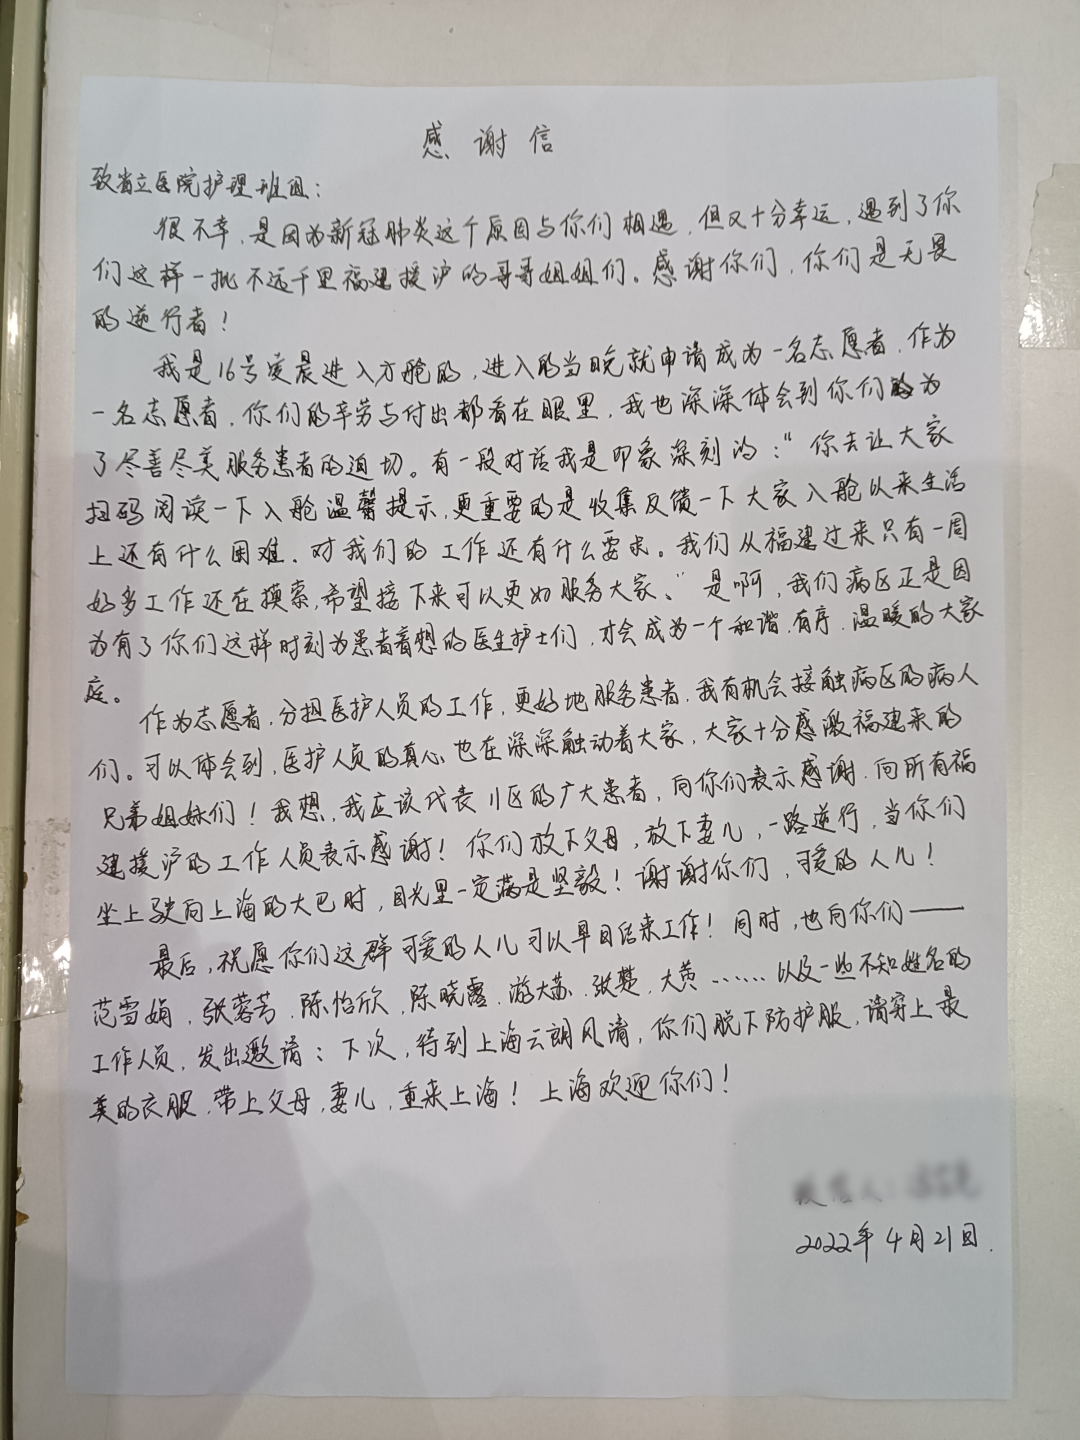 感谢信
致省立医院护理班组：
很不幸，是因为新冠肺炎这个原因与你们相遇，但又十分幸运，遇到了你
们这样一批不远千里福建援沪的哥哥姐姐们。感谢你们，你们是无畏
的逆行者！
我是16号凌晨进入方舱的，进入的当晚就申请成为一名志愿者，作为
一名志愿者，你们的辛劳与付出都看在眼里，我也深深体会到你们为
了尽善尽美服务患者的迫切。有一段对话我是印象深刻的：“你去让大家
扫码阅读一下入舱温馨提示，更重要的是收集反馈一下大家入舱以来生活
上还有什么困难，对我们的工作还有什么要求。我们从福建过来只有一周
好多工作还在摸索，希望接下来可以更好服务大家、”是啊，我们病区正是因
为有了你们这样时刻为患者着想的医生护士们，才会成为一个和谐、有序、温暖的大家
庭。
作为志愿者，分担医护人员的工作，更好地服务患者，我有机会接触病区的病人
们。可以体会到，医护人员的真心也在深深触动着大家，大家十分感激福建来的
兄弟姐妹们！我想，我应该代表儿区的广大患者，向你们表示感谢，向所有福
建援沪的工作人员表示感谢！你们放下父母，放下妻儿，一路逆行，当你们
坐上驶向上海的大巴时，目光里一定满是坚毅！谢谢你们，可爱的人儿！
最后，祝愿你们这群可爱的人儿可以早日结束工作！同时，也向你们——
范雪娟、张蓉芳、陈怡欣、陈晓露、游大燕、张楚、大黄……以及一些不知姓名的
工作人员，发出邀请：下次，待到上海云朗风清，你们脱下防护服，请穿上最
美的衣服，带上父母，妻儿，重来上海！上海欢迎你们！
2022年4月21日.